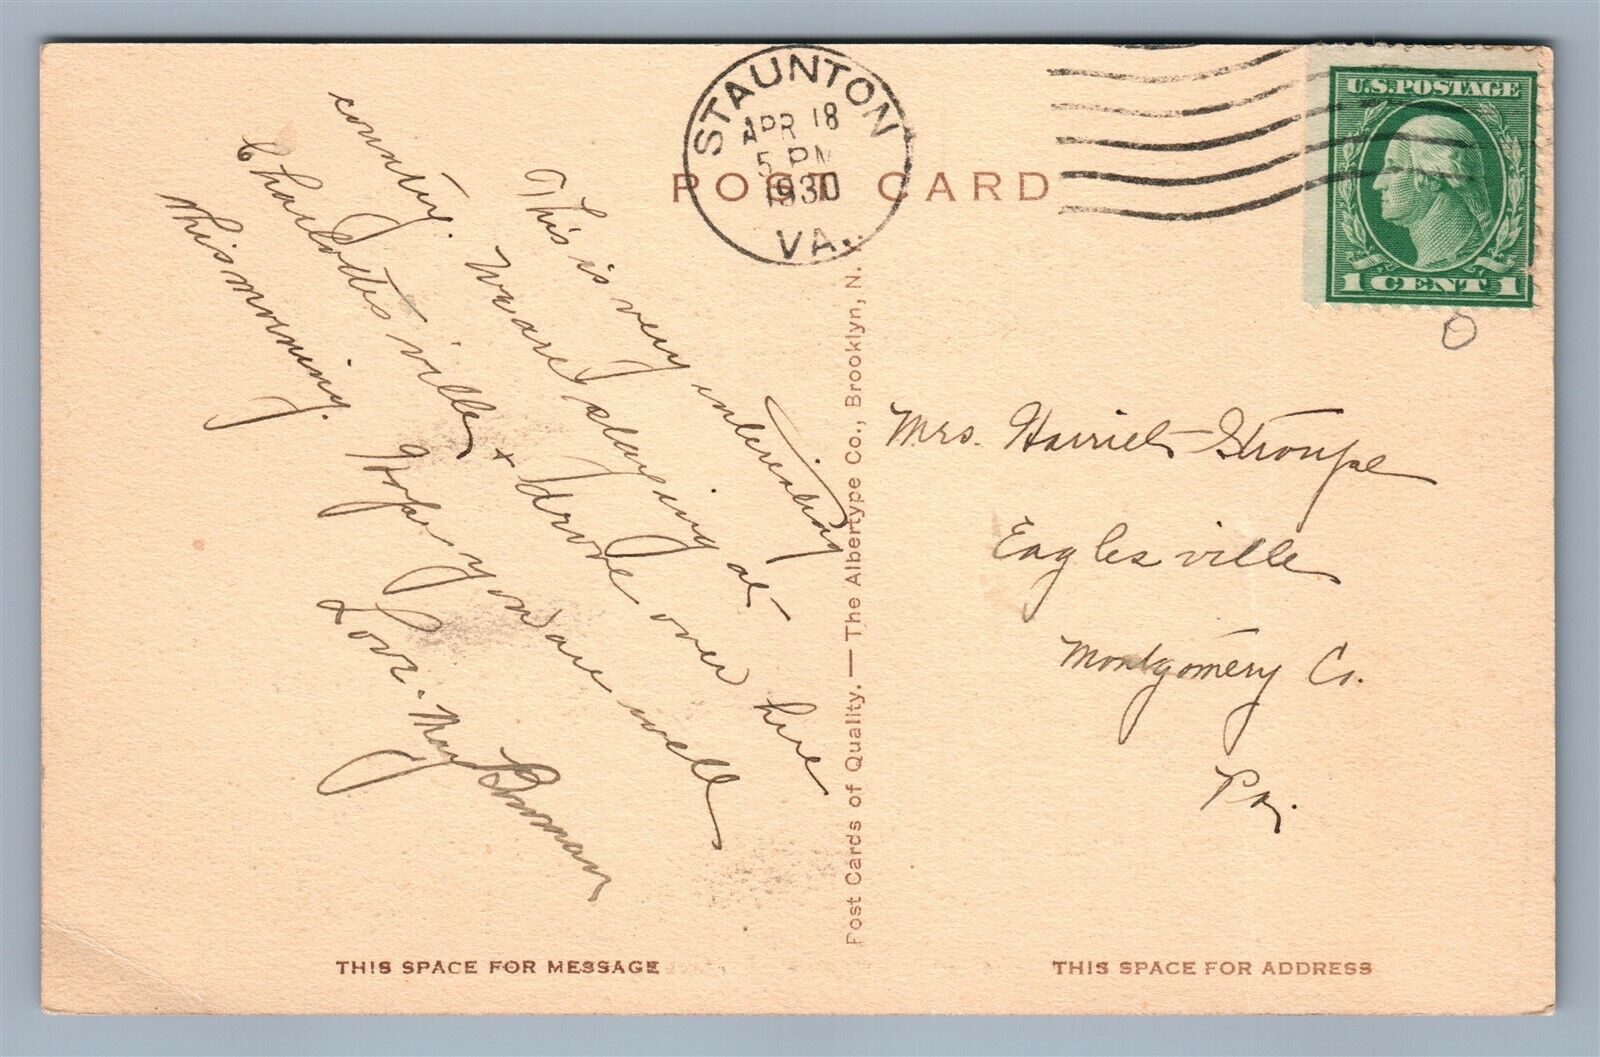 STAUNTON
APR 18
5 PM
1930
VA.
U.S.POSTAGE
1 CENT 1
POST CARD
This is very interesting
country. We are staying at
Charlottesville + drove over here
this morning. Hope you are well
Love. May
Mrs. Harriet Stroupe
Eaglesville
Montgomery Co.
Pa.
Post Cards of Quality. — The Albertype Co., Brooklyn, N.
THIS SPACE FOR MESSAGE
THIS SPACE FOR ADDRESS